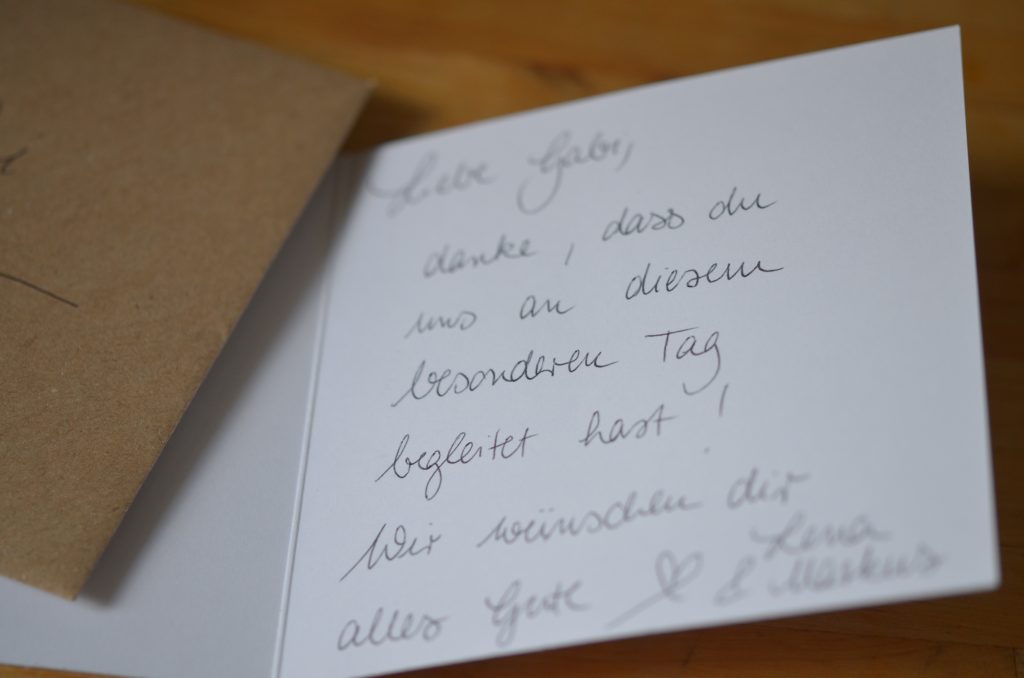 Liebe Gabi,
danke, dass du
uns an diesem
besonderen Tag
begleitet hast!
Wir wünschen dir
alles Gute ♡ Lena
& Markus